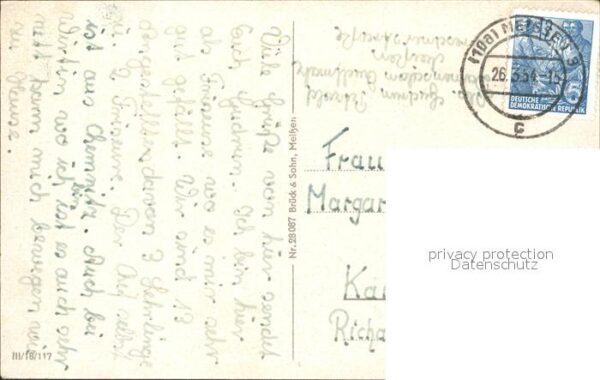 Viele Grüße von hier sendet
Euch Gudrun. Ich bin hier
als Friseuse wo es mir sehr
gut gefällt. Wir sind 13
Angestellte davon 3 Lehrlinge
u. 2 Friseure. Der Chef selbst
ist aus Chemnitz. Auch bei
Wirtin wo ich bin ist es auch sehr
nett kann mich bewegen wie
zu Hause.
III/18/117
Nr. 28087 Brück & Sohn, Meißen
Abs. Gudrun
Meißen
(10a) MEISSEN 3
26.3.54-15
c
DEUTSCHE
DEMOKRATISCHE REPUBLIK
Frau
Margar
Ka
Richa
privacy protection
Datenschutz